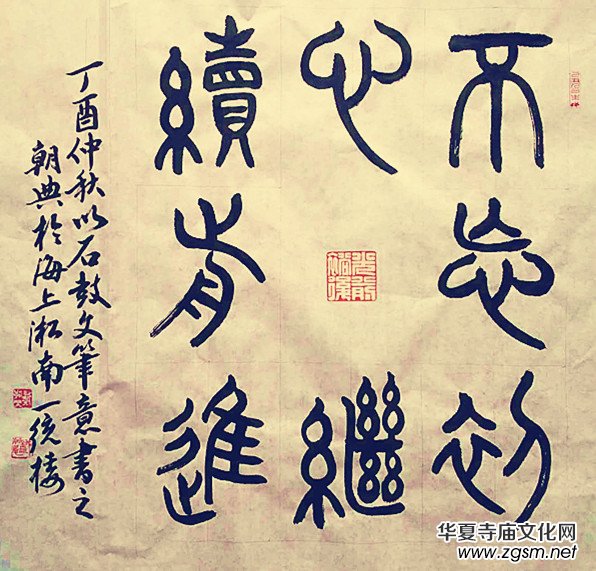 不忘初
心繼
續前進
丁酉仲秋以石鼓文筆意書之
朝典於海上淞南一統楼
华夏寺庙文化网
www.zgsm.net